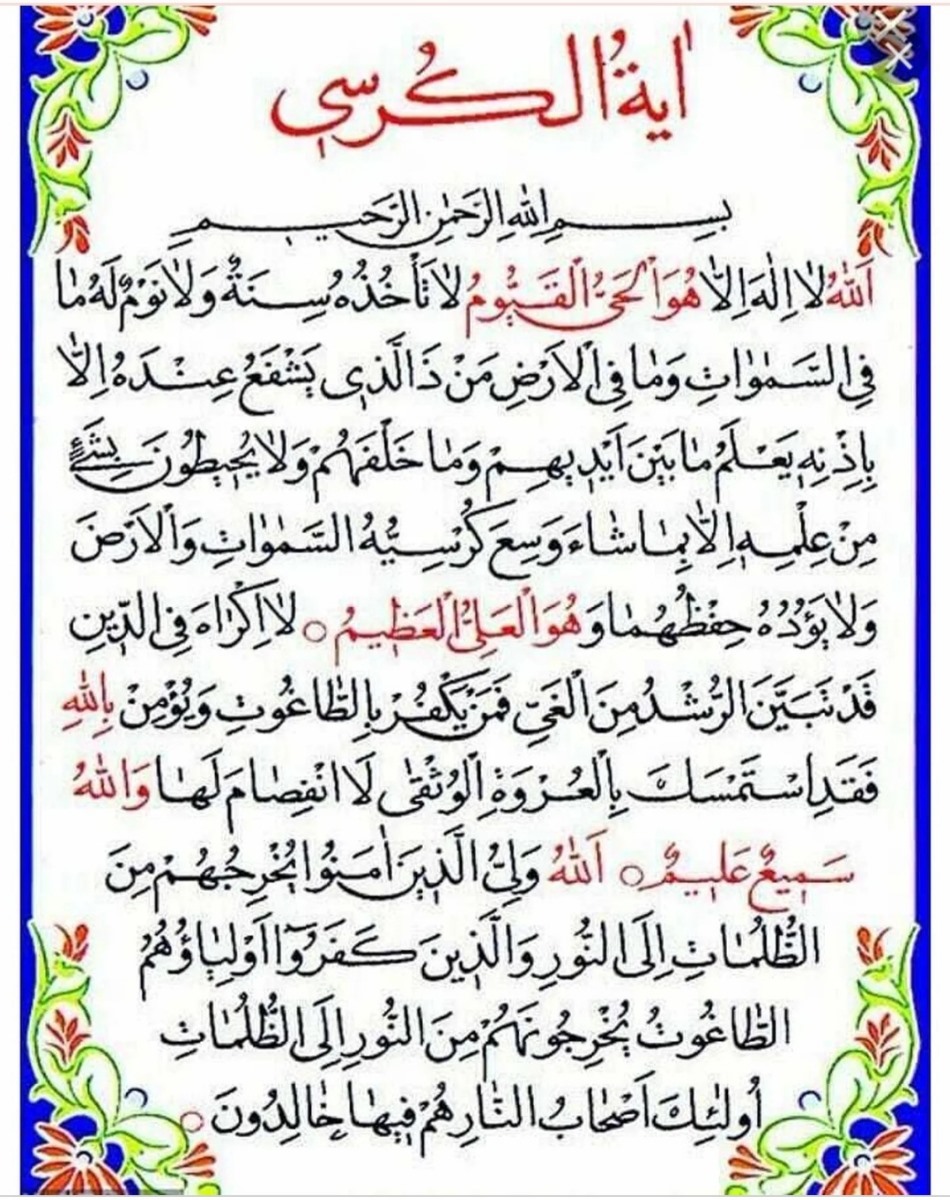 اٰیةُ الکُرسی
بِسمِ اللهِ الرَحمٰنِ الرَحیم
اَللهُ لٰا اِلٰهَ اِلّٰا هُوَ اْلحَیُّ اْلقَیُّومُ لاٰ تَأخُذُهُ سِنَةٌ وَ لاٰ نَومٌ لَهُ مٰا
فِی السَّمٰوٰاتِ وَ مٰا فِی الْاَرْضِ مَنْ ذَالَّذی یَشْفَعُ عِنْدَهُ اِلّٰا
بِاِذْنِهِ یَعْلَمُ مٰا بَیْنَ اَیْدیهِمْ وَ مٰا خَلْفَهُمْ وَ لاٰ یُحیطُونَ بِشَیْءٍ
مِنْ عِلْمِهِ اِلّٰا بِمٰا شٰاءَ وَسِعَ کُرْسِیُّهُ السَّمٰوٰاتِ وَ الْاَرْضَ
وَ لاٰ یَؤُدُهُ حِفْظُهُمٰا وَ هُوَ اْلعَلِیُّ اْلعَظیمُ ○ لاٰ اِکْرٰاهَ فِی الدّینِ
قَدْ تَبَیَّنَ الرُّشْدُ مِنَ الْغَیِّ فَمَنْ یَکْفُرْ بِالطّٰاغُوتِ وَ یُؤْمِنْ بِاللهِ
فَقَدِ اسْتَمْسَکَ بِالْعُرْوَةِ اْلوُثْقٰی لَا انْفِصٰامَ لَهٰا وَاللهُ
سَمیعٌ عَلیمٌ ○ اَللهُ وَلِیُّ الَّذینَ اٰمَنُوا یُخْرِجُهُمْ مِنَ
الظُّلُمٰاتِ اِلَی النُّورِ وَ الَّذینَ کَفَرُوٓا اَوْلِیٰاؤُهُمُ
الطّٰاغُوتُ یُخْرِجُونَهُمْ مِنَ النُّورِ اِلَی الظُّلُمٰاتِ
اُولٰئِکَ اَصْحٰابُ النّٰارِ هُمْ فیهٰا خٰالِدُونَ ○